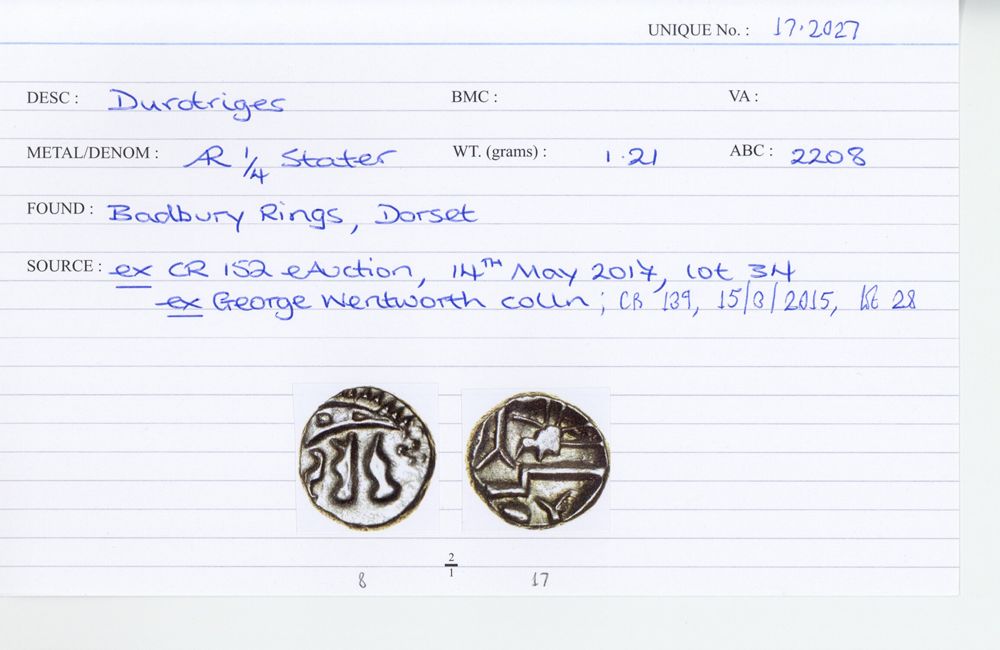 UNIQUE No. : 17.2027
DESC : Durotriges BMC : VA :
METAL/DENOM : AR 1/4 Stater WT. (grams) : 1.21 ABC : 2208
FOUND : Badbury Rings, Dorset
SOURCE : ex CR 152 eAuction, 14TH May 2017, lot 34
ex George Wentworth colln; CR 139, 15/3/2015, lot 28
2/1
8 17